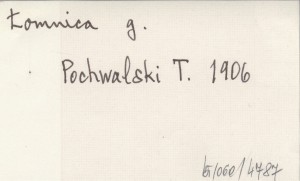 Łomnica g.
Pochwalski T. 1906
4787